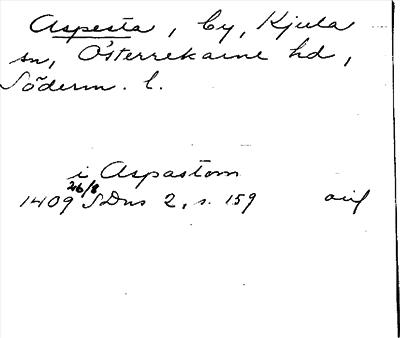 Aspesta, by, Kjula
sn, Österrekarne hd,
Söderm. l.
i Aspastom
1409 26/8 SDns 2, s. 159